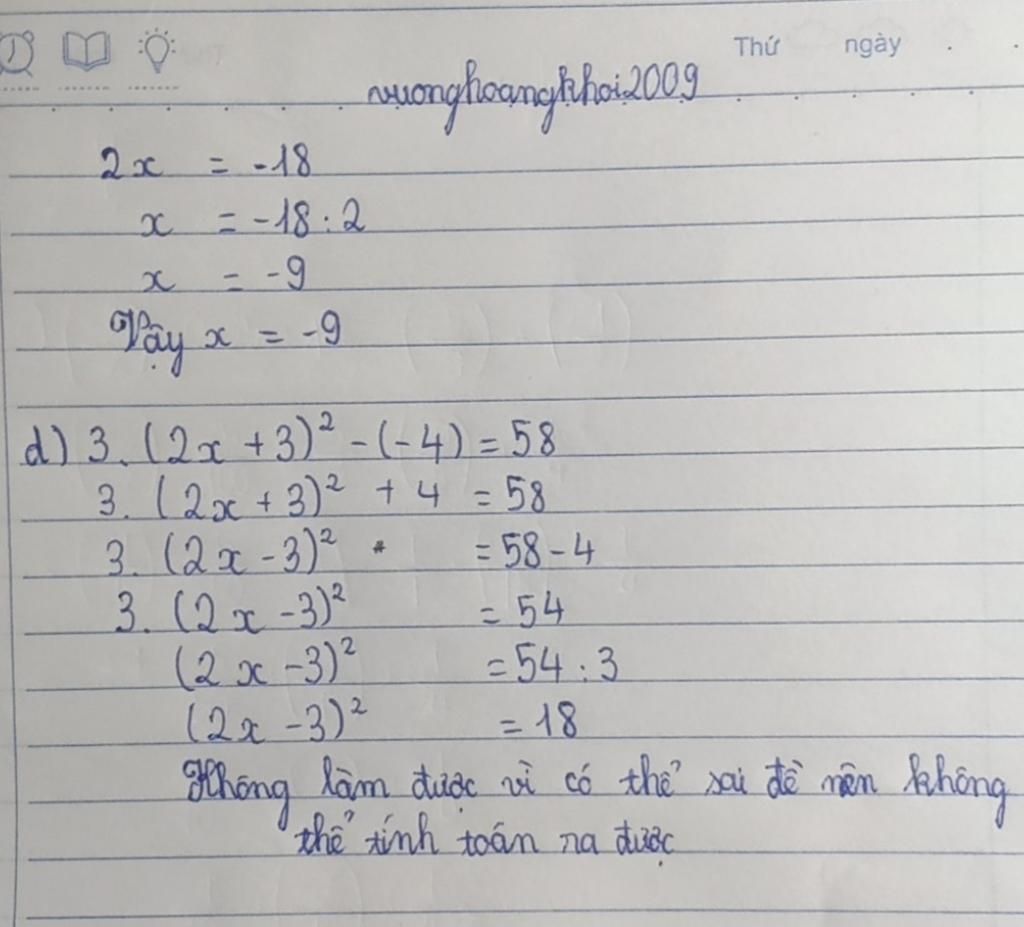 Thứ ngày
vuonghoangkhoi2009
2x = -18
x = -18 : 2
x = -9
Vậy x = -9
d) 3. (2x + 3)² - (-4) = 58
3. (2x + 3)² + 4 = 58
3. (2x - 3)² = 58 - 4
3. (2x - 3)² = 54
(2x - 3)² = 54 : 3
(2x - 3)² = 18
Không làm được vì có thể sai đề nên không
thể tính toán ra được